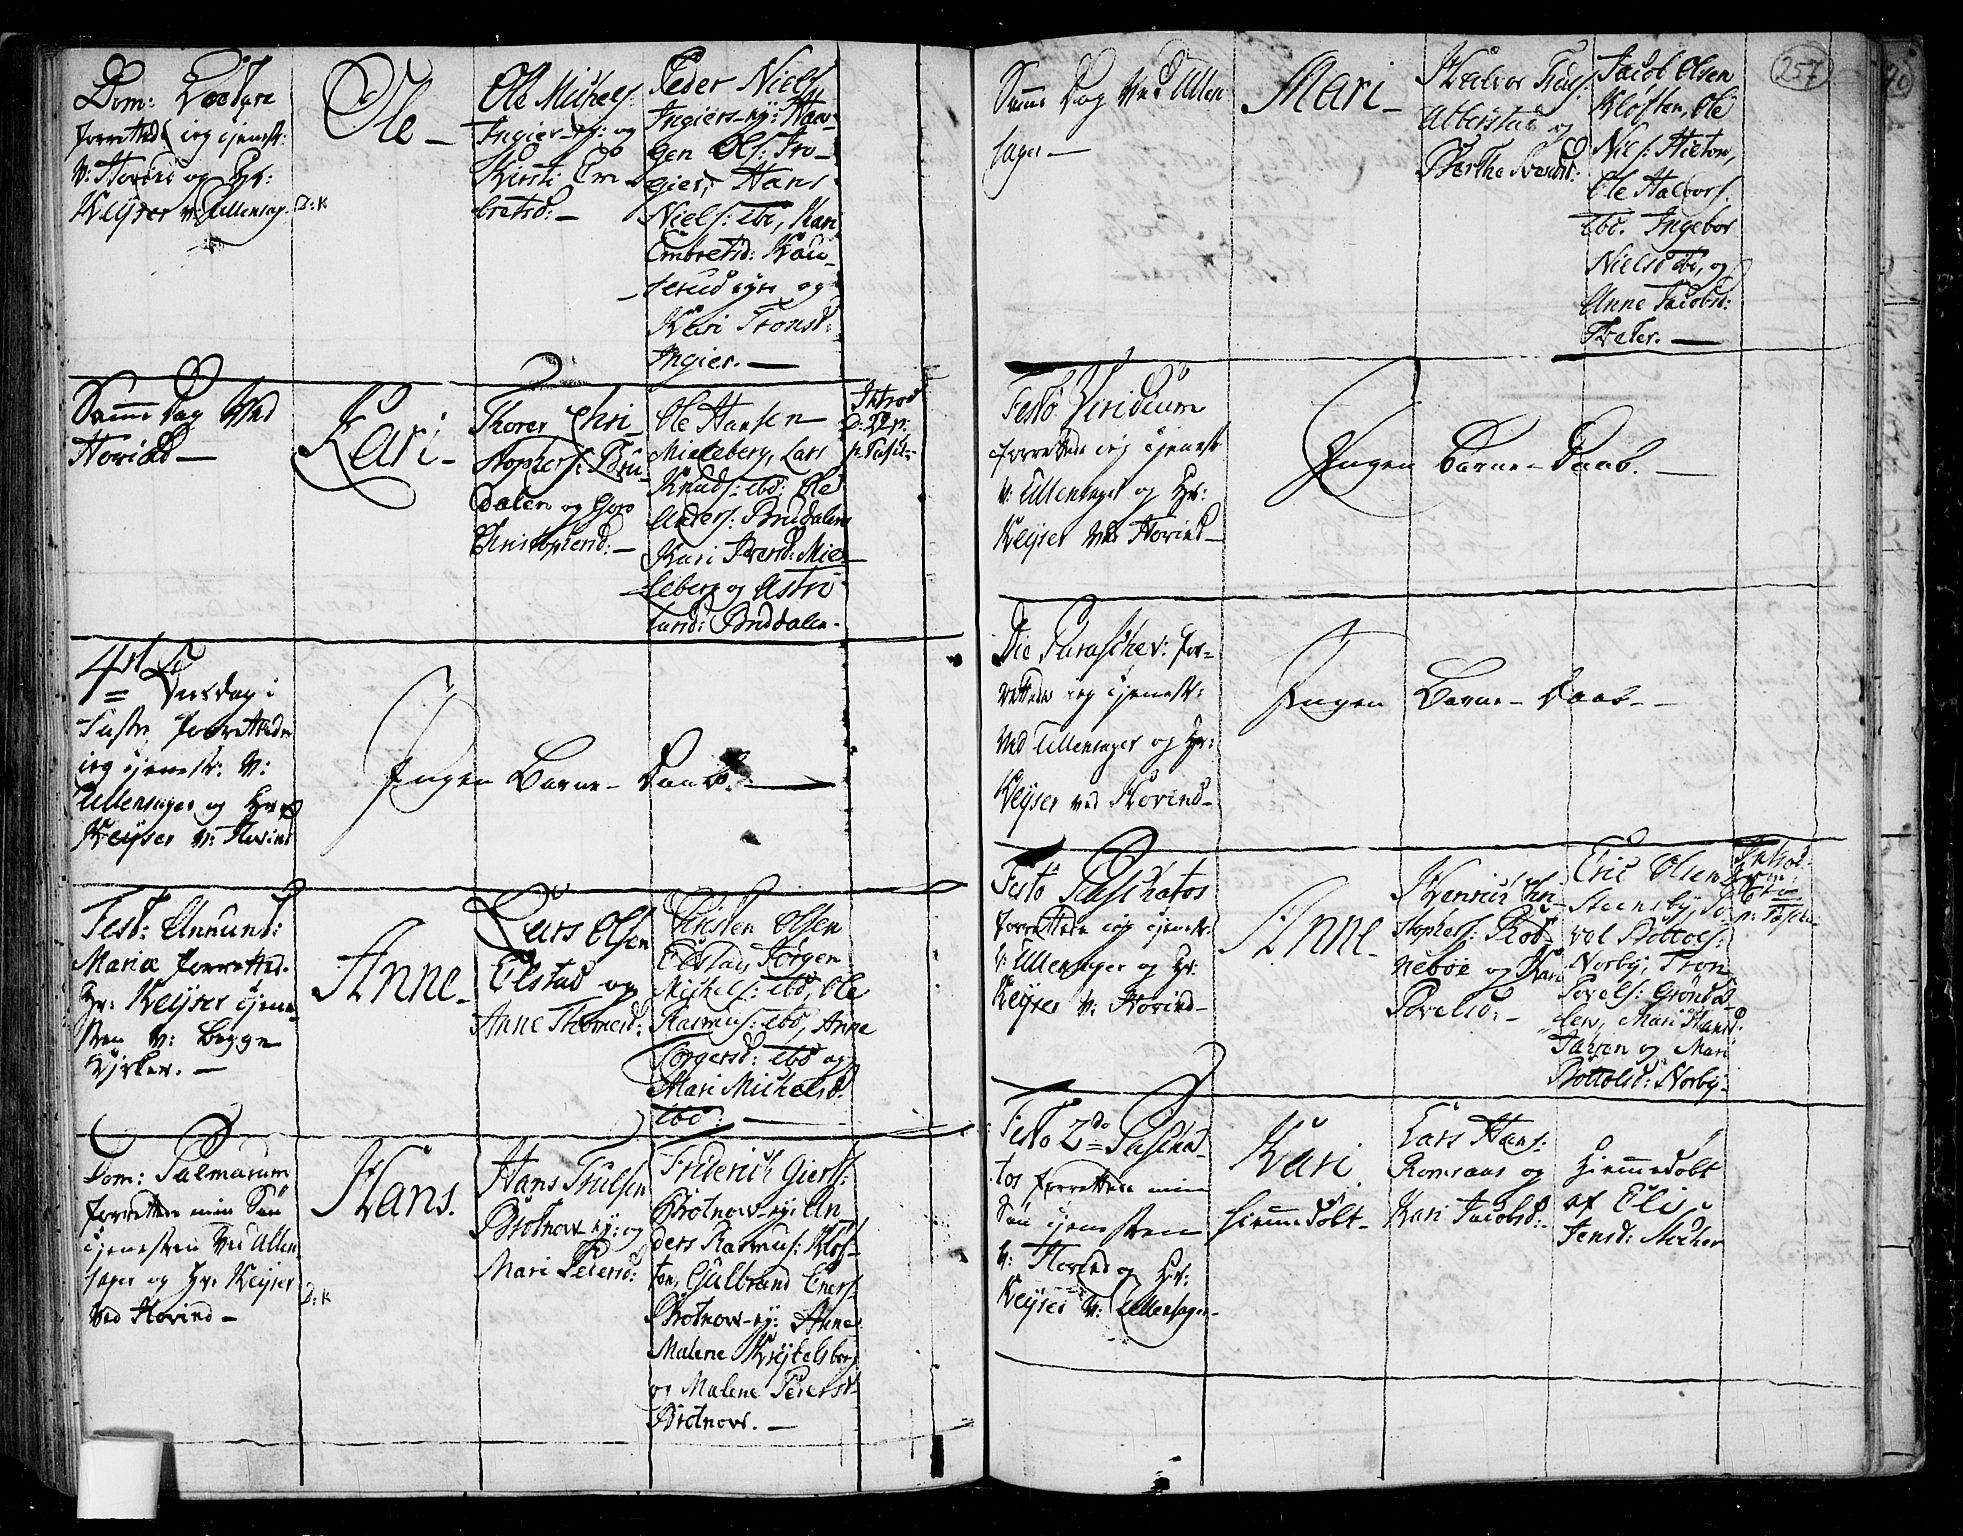 Dom: Lætare
forrettede ieg tjenest:
v: Hovind og Hr:
Keyser v: Ullensag. D: K
Ole -
Ole Michels:
Ingier-ey: og
Kiersti Em-
bretsd: -
Peder Niels:
Ingiers-ey: Haa-
gen Ols: Tro-
gier, Hans
Niels: ibd, Kari
Embretsd: Kau-
serud eyre og
Kari Tronsd:
Ingier. -
Samme Dag Ved
Hovind -
Kari -
Thorer Chri-
stophers: Bru-
dalen og Goro
Christophersd: -
Ole Hansen
Mieleberg, Lars
Knuds: ibd: Ole
Anders: Brudalen
Kari Iversd: Mie-
leberg og Astri
Larsd: Bruddalen -
Introd
D: 22 p:
p: Pasch:
4de Tirsdag i
Faste forrettede
ieg tjenest: v:
Ullensager og Hr:
Keyser v: Hovind
Ingen Barne-Daab. -
Fest: Annunt:
Mariæ forretted.
Hr: Keyser tjene-
sten v: begge
Kirker. -
Anne -
Lars Olsen
Elstad og
Anne Thomesd:
Christen Olsen
Elstad, Jørgen
Michels: ibd, Ole
Rasmus: ibd, Anne
Jørgensd: ibd og
Mari Michelsd:
ibd: -
Dom: Palmarum
forrettede min Søn
tjenesten Ved Ullen-
sager og Hr: Keyser
Ved Hovind - D: K
Hans.
Hans Trulsen
Brotnov-ey: og
Mari Pedersd:
Friderich Gierts:
Brotnov-ey: An-
ders Rasmus: Kløf-
ten, Gulbrand Eners:
Brotnov-ey: Anne
Malene Krykelsberg
og Malene Pedersd:
Brotnov. -
257
Samme Dag Ved Ullen
sager -
Mari -
Halvor Truls:
Alberstad og
Berthe Iversd:
Jacob Olsen
Kløften, Ole
Niels: Hieton,
Ole Halvors:
ibd. Ingebor
Nielsd ibd, og
Anne Jacobsd:
Træter. -
Festo Viridium
forrettede ieg tjenest
v: Ullensager og Hr:
Keyser Ved Hovind -
Ingen Barne-Daab. -
Die Paraschev: for-
rettede ieg tjenest:
Ved Ullensager og Hr:
Keyser ved Hovind -
Ingen Barne-Daab -
Festo Paschatos
forrettede ieg tjenest:
v: Ullensager og Hr:
Keyser v: Hovind -
Anne -
Henrich Chri-
stophers: Rod-
neboe og Kari
Povelsd: -
Eric Olsen
Steensby, Po-
vel Bottols:
Norby, Tron
Povels: Grønda-
len, Mari Hansd:
Jahren og Mari
Bottolsd: Norby -
Introd:
p: Pasch:
Festo 2do Pascha-
tos forrettede min
Søn tjenesten
v: Hovind og Hr:
Keyser v: Ullensager -
Kari
hiemmedøbt -
Lars Hans:
Romsaas og
Kari Jacobsd: -
Hiemmedøbt
af Eli
Jensd: Mocher